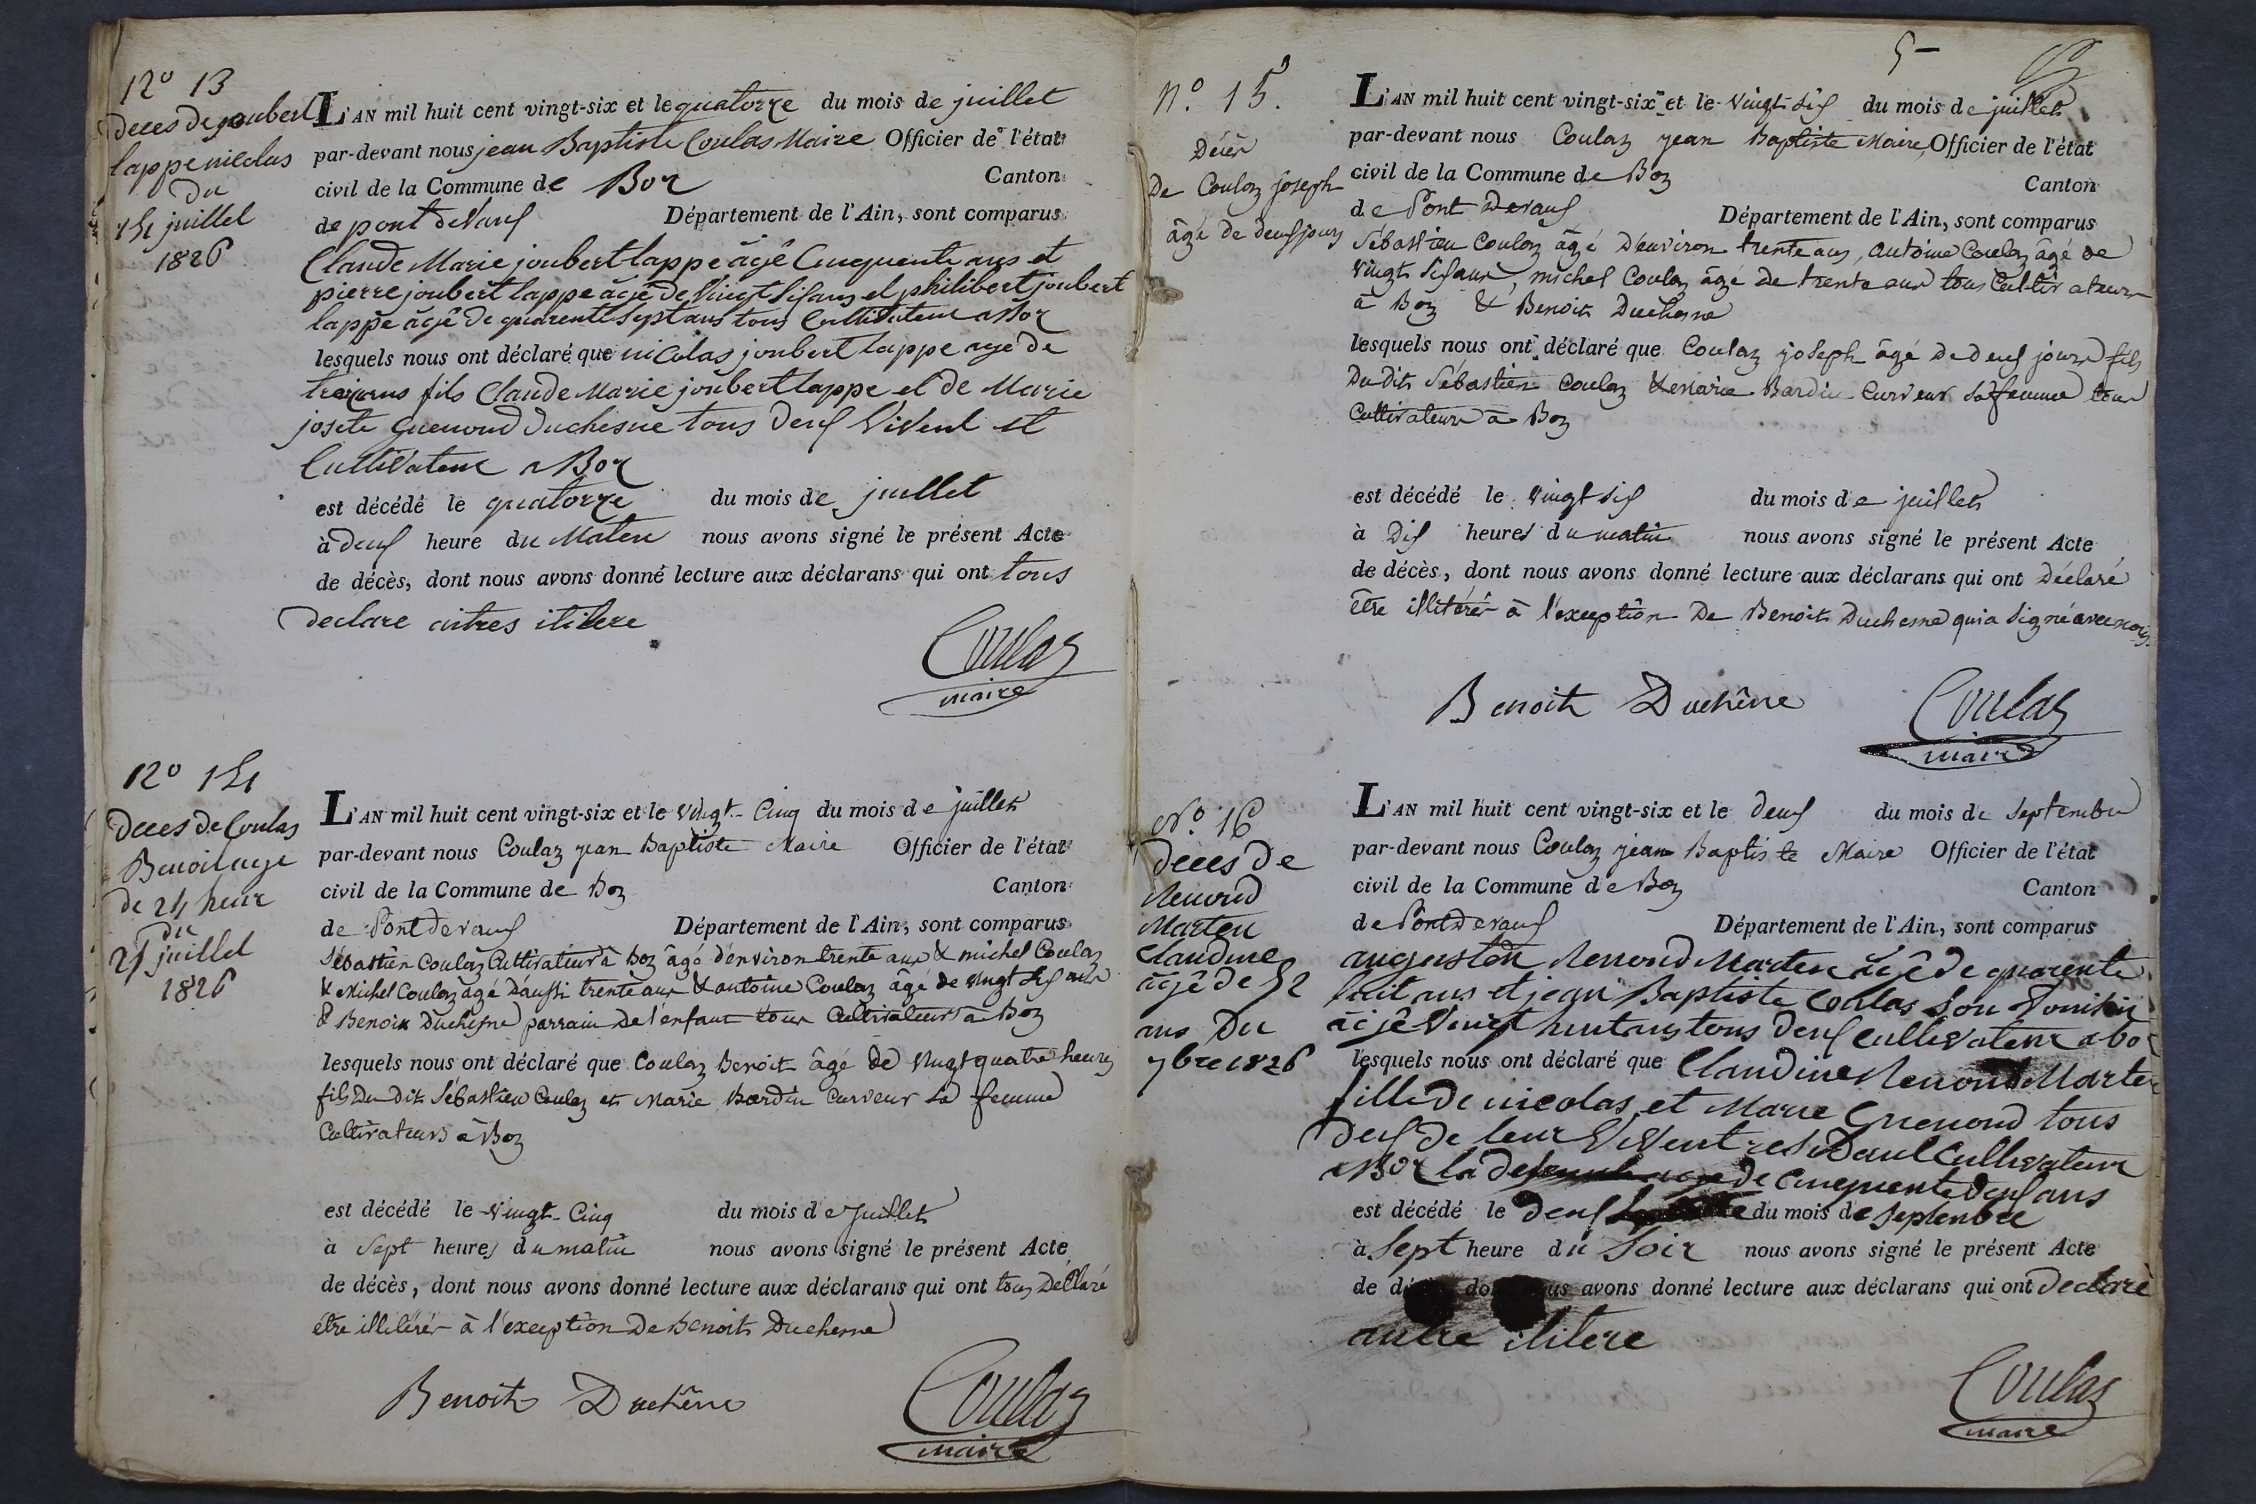 N° 13
deces de joubert
lappe nicolas
du
14 juillet
1826
L'AN mil huit cent vingt-six et le quatorze du mois de juillet
par-devant nous jean Baptiste Coulas Maire Officier de l'état
civil de la Commune de Boz Canton
de pont devaux Département de l'Ain, sont comparus
Claude Marie joubert lappe âgé Cinquente ans et
pierre joubert lappe âgé de vingt six ans et philibert joubert
lappe âgé de quarente sept ans tous Cultivateur a Boz
lesquels nous ont déclaré que nicolas joubert lappe age de
ans fils Claude Marie joubert lappe et de Marie
josete Guenoud Duchesne tous deux Vivent et
Cultivateur a Boz
est décédé le quatorze du mois de juillet
à deux heure du Maten nous avons signé le présent Acte
de décès, dont nous avons donné lecture aux déclarans qui ont tous
declare itilere
Coulas
maire
N° 14
deces de Coulas
Benoit age
de 24 heur
du
25 juillet
1826
L'AN mil huit cent vingt-six et le vingt-Cinq du mois de juillet
par-devant nous Coulaz jean Baptiste Maire Officier de l'état
civil de la Commune de Boz Canton
de Pont devaux Département de l'Ain, sont comparus
Sébastien Coulaz Cultivateur à Boz âgé d'environ trente ans & michel Coulaz
& Michel Coulaz âgé d'aussi trente ans & antoine Coulaz âgé de vingt six ans
& Benoit Duchesne parrain de l'enfant tous Cultivateurs à Boz
lesquels nous ont déclaré que Coulaz Benoit âgé de vingt quatre heures
fils du dit Sébastien Coulaz et Marie Bardin Curveur sa femme
Cultivateurs à Boz
est décédé le vingt-Cinq du mois de juillet
à sept heures du matin nous avons signé le présent Acte
de décès, dont nous avons donné lecture aux déclarans qui ont tous déclaré
être illitérés à l'exception de Benoit Duchesne
Benoit Duchêne
Coulaz
maire
5
N.° 15.
Décès
De Coulaz Joseph
âgé de deux jours
L'AN mil huit cent vingt-six et le vingt six du mois de juillet
par-devant nous Coulaz jean Baptiste Maire Officier de l'état
civil de la Commune de Boz Canton
de Pont devaux Département de l'Ain, sont comparus
Sébastien Coulaz âgé d'environ trente ans, antoine Coulaz âgé de
vingt six ans, michel Coulaz âgé de trente ans tous Cultivateurs
à Boz & Benoit Duchesne
lesquels nous ont déclaré que Coulaz joseph âgé de deux jours fils
Du dit Sébastien Coulaz & marie Bardin Curveur sa femme tous
Cultivateurs à Boz
est décédé le vingt six du mois de juillet
à Dix heures du matin nous avons signé le présent Acte
de décès, dont nous avons donné lecture aux déclarans qui ont Déclaré
être illitérés à l'exception De Benoit Duchesne qui a signé avec nous
Benoit Duchêne
Coulaz
maire
N.° 16
deces de
Renoud
Marten
Claudine
âgê de 52
ans Du
7bre 1826
L'AN mil huit cent vingt-six et le deux du mois de Septembre
par-devant nous Coulaz jean Baptiste Maire Officier de l'état
civil de la Commune de Boz Canton
de Pont Devaux Département de l'Ain, sont comparus
Renoud Marten âgê de quarente
huit ans et jean Baptiste Coulas Son
âgê Vingt huit ans tous deux cultivateur a boz
lesquels nous ont déclaré que Claudine Renoud Marten
fille de nicolas et Marie Guenoud tous
deux de leur Vivent Cultivateur
a Boz la de Cinquente deux ans
est décédé le deux du mois de Septenbre
à Sept heure du Soir nous avons signé le présent Acte
de décès, dont nous avons donné lecture aux déclarans qui ont declarè
autre ilitere
Coulas
maire